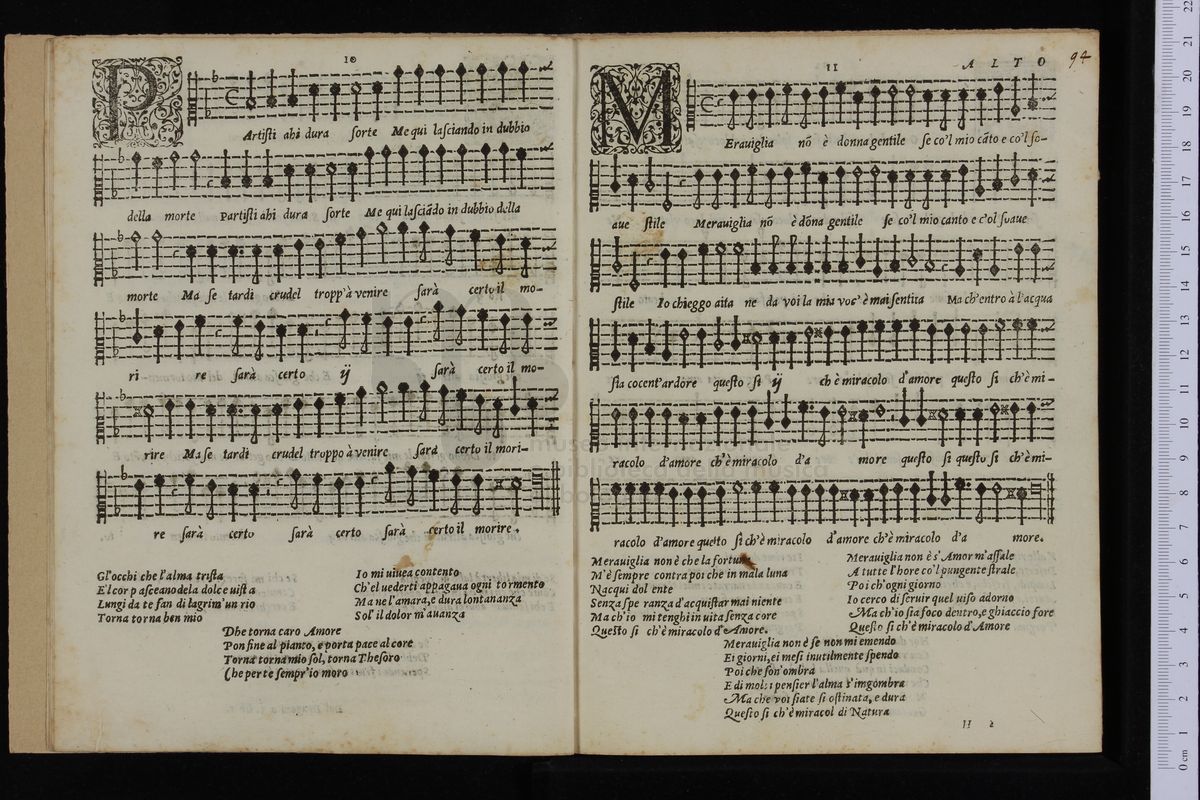 10
P Artisti ahi dura sorte Me qui lasciando in dubbio
della morte Partisti ahi dura sorte Me qui lasciãdo in dubbio della
morte Ma se tardi crudel tropp'à venire sarà certo il mo-
ri re sarà certo ij sarà certo il mo-
rire Ma se tardi crudel troppo à venire sara certo il mori-
re sarà certo sarà certo sarà certo il morire.
Gl'occhi che l'alma trista
E l cor pasceano dela dolce uista
Lungi da te fan di lagrim'un rio
Torna torna ben mio
Io mi uiuea contento
Ch'el uederti appagaua ogni tormento
Ma ne l'amara, e dura lontananza
Sol'il dolor m'auanza
Dhe torna caro Amore
Pon fine al pianto, e porta pace al core
Torna torna mio sol, torna Thesoro
Che per te sempr'io moro
11
ALTO
94
M Erauiglia nõ è donna gentile se co'l mio cãto e co'l so-
aue stile Merauiglia nõ è dõna gentile se co'l mio canto e c'ol suaue
stile Io chieggo aita ne da voi la mia voc' è mai sentita Ma ch'entro à l'acqua
sia cocent'ardore questo si ij ch è miracolo d'amore questo si ch'è mi-
racolo d'amore ch'è miracolo d'a more questo si questo si ch'è mi-
racolo d'amore questo si ch'è miracolo d'amore ch'è miracolo d'a more.
Merauiglia non è che la fortuna
M'è sempre contra poi che in mala luna
Nacqui dol ente
Senza spe ranza d'acquistar mai niente
Ma ch'io mi tenghi in uita senza core
Questo si ch'è miracolo d'Amore.
Merauiglia non è s'Amor m'assale
A tutte l'hore co'l pungente strale
Poi ch'ogni giorno
Io cerco di seruir quel uiso adorno
Ma ch'io sia foco dentro, e ghiaccio fore
Questo si ch'è miracolo d'Amore
Merauiglia non è se non mi emendo
Ei giorni, ei mesi inutilmente spendo
Poi che son'ombra
E di molti pensier l'alma s'imgombra
Ma che voi siate si ostinata, e dura
Questo si ch'è miracol di Natura
H 2
museo
biblioteca della musica
0 cm 1 2 3 4 5 6 7 8 9 10 11 12 13 14 15 16 17 18 19 20 21 22